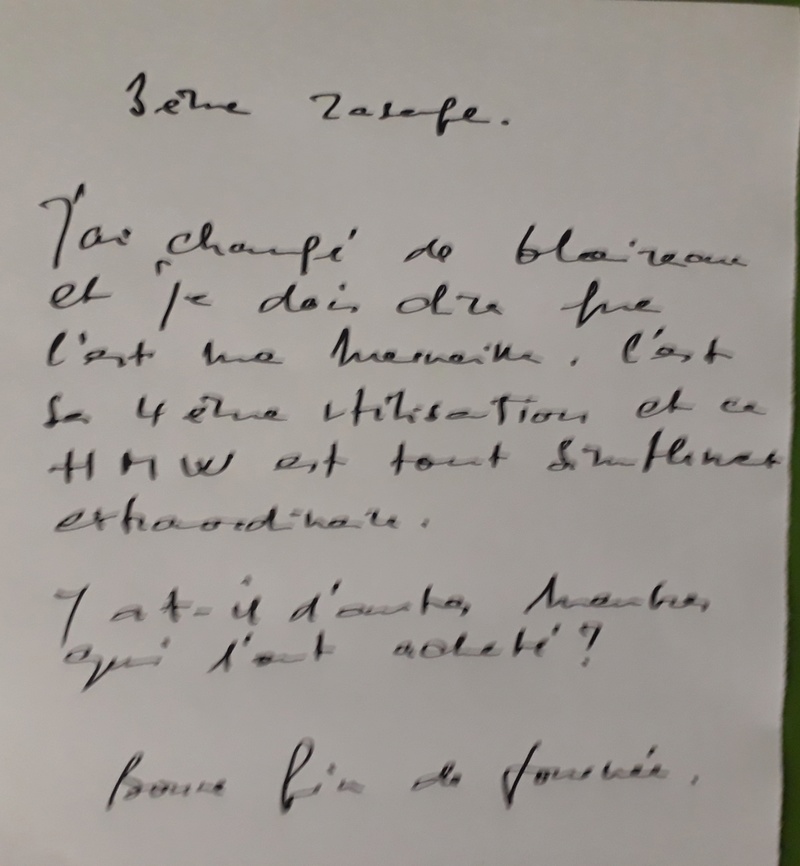 3ème rasage.
J'ai changé de blaireau
et je dois dire que
c'est une merveille. C'est
sa 4ème utilisation et ce
HMW est tout simplement
extraordinaire.
Y at-il d'autres membres
qui l'ont acheté ?
Bonne fin de journée.